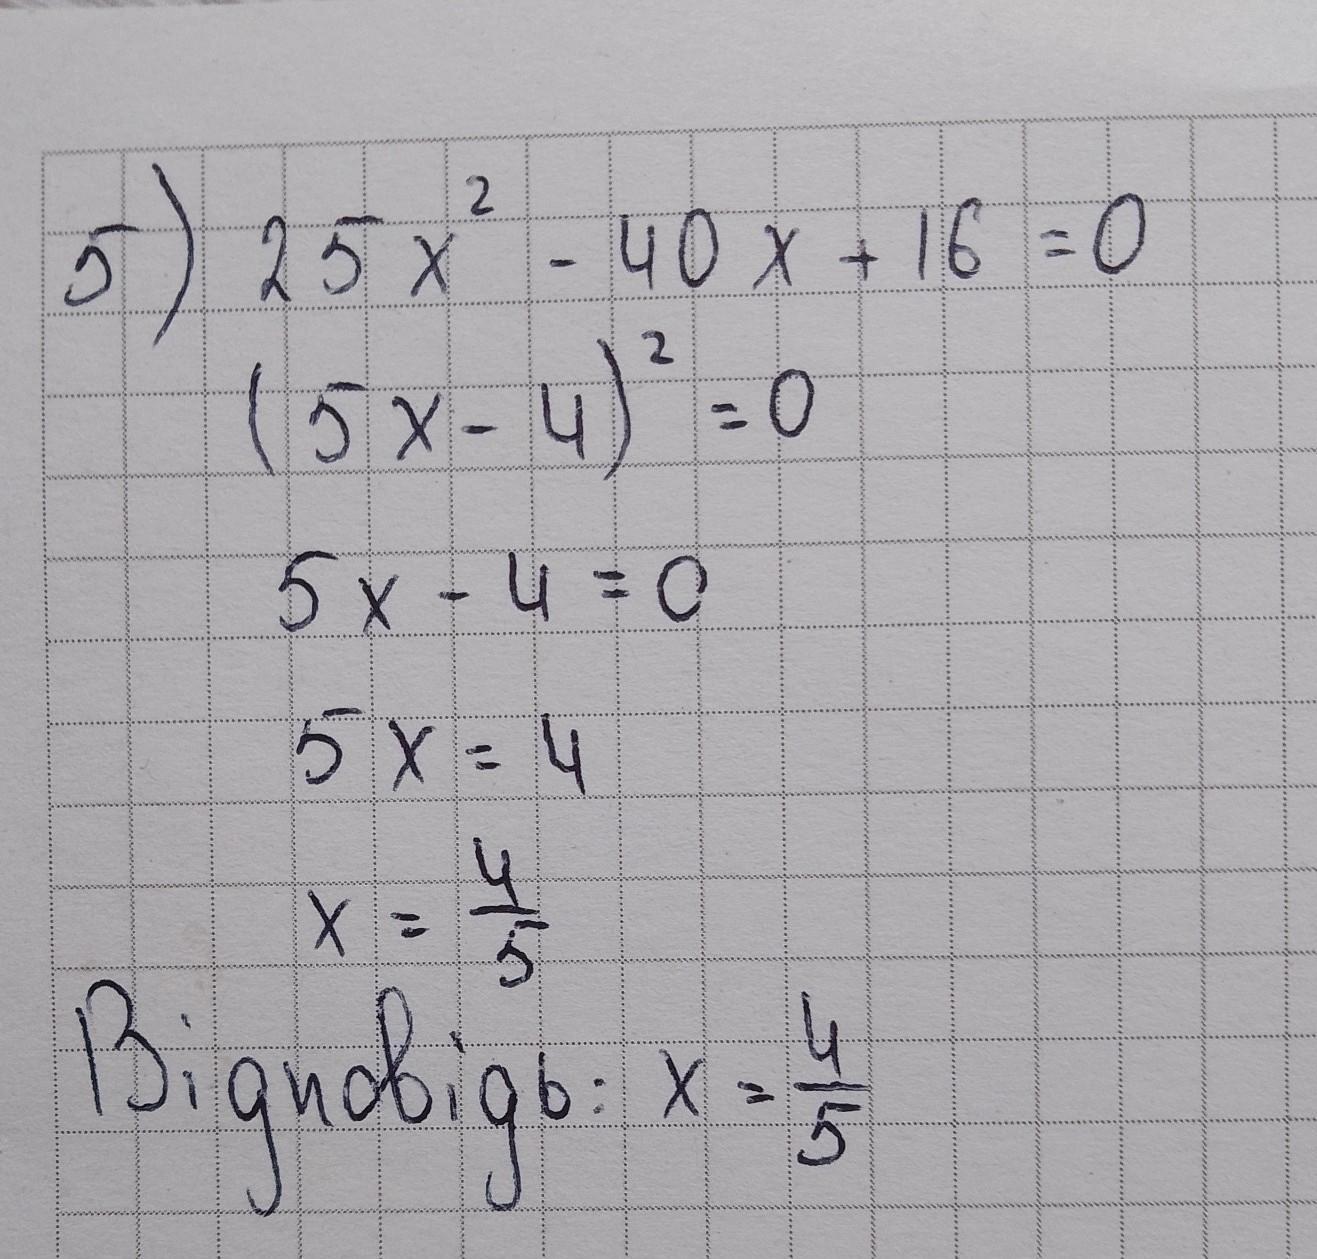 5) 25x² - 40x + 16 = 0
(5x - 4)² = 0
5x - 4 = 0
5x = 4
x = 4/5
Відповідь: x = 4/5